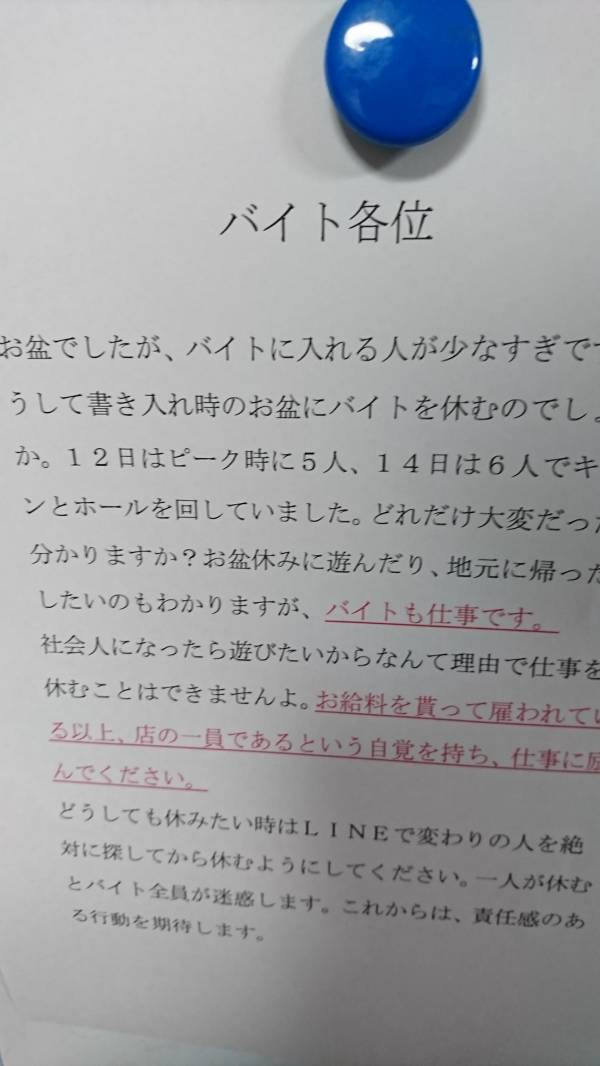 バイト各位
お盆でしたが、バイトに入れる人が少なすぎで
うして書き入れ時のお盆にバイトを休むのでし
か。１２日はピーク時に５人、１４日は６人でキ
ンとホールを回していました。どれだけ大変だっ
分かりますか？お盆休みに遊んだり、地元に帰っ
したいのもわかりますが、バイトも仕事です。
社会人になったら遊びたいからなんて理由で仕事を
休むことはできませんよ。お給料を貰って雇われてい
る以上、店の一員であるという自覚を持ち、仕事に励
んでください。
どうしても休みたい時はＬＩＮＥで変わりの人を絶
対に探してから休むようにしてください。一人が休む
とバイト全員が迷惑します。これからは、責任感のあ
る行動を期待します。